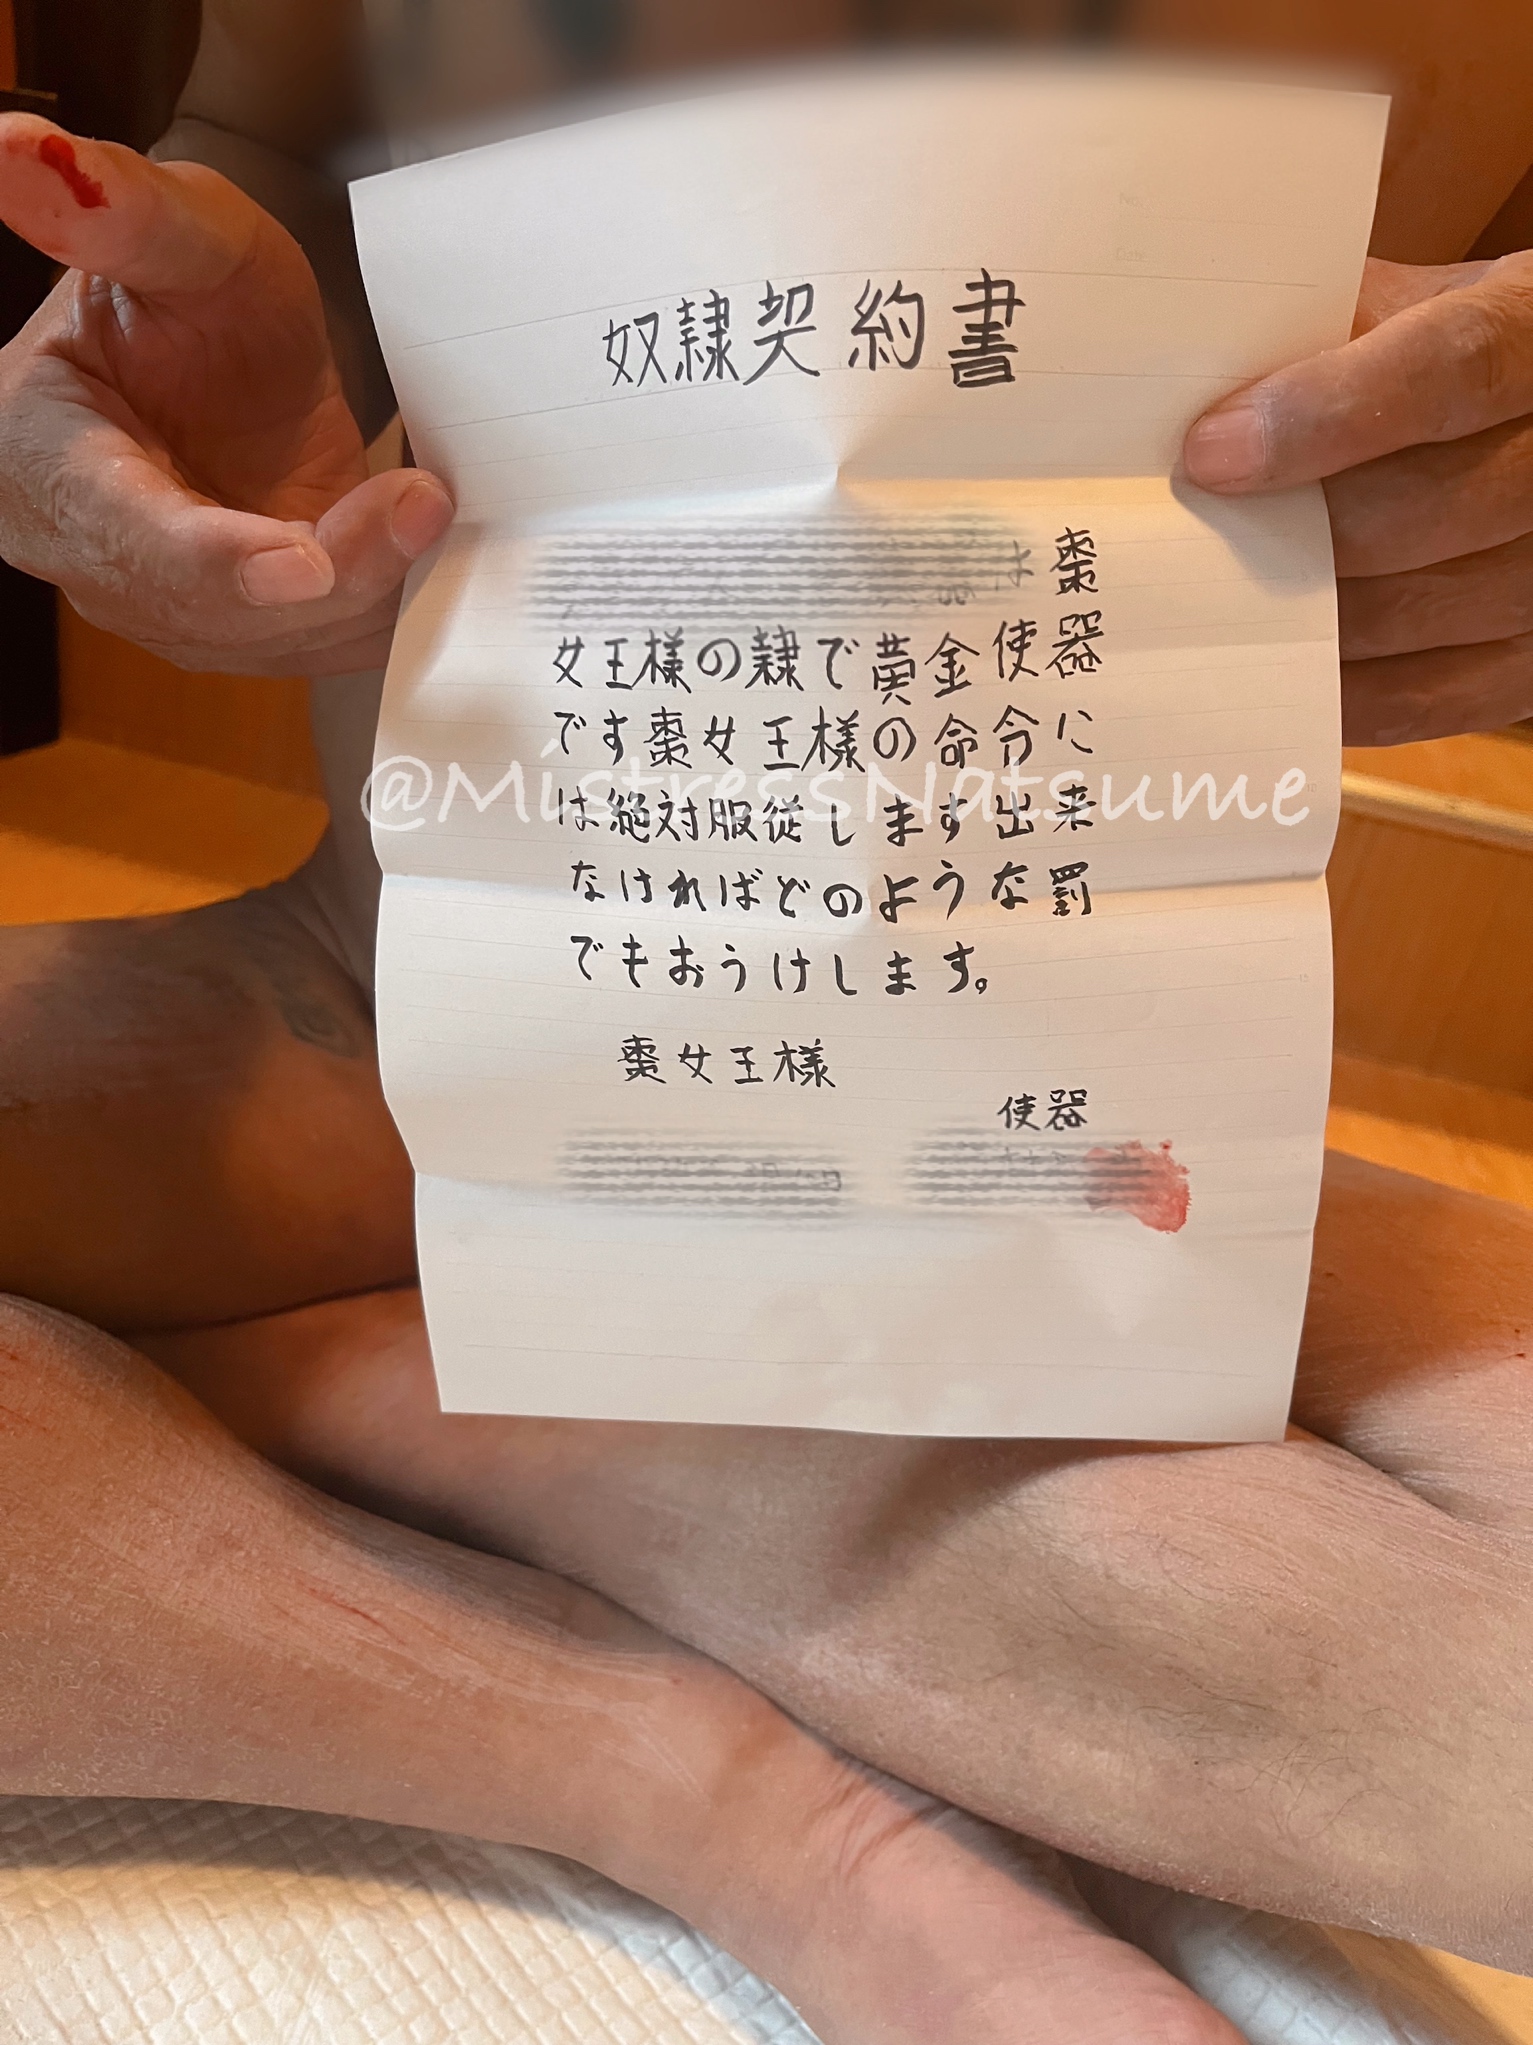 奴隷契約書
は棗
女王様の隷で黄金使器
です棗女王様の命令に
は絶対服従します出来
なければどのような罰
でもおうけします。
棗女王様
使器
@MistressNatsume